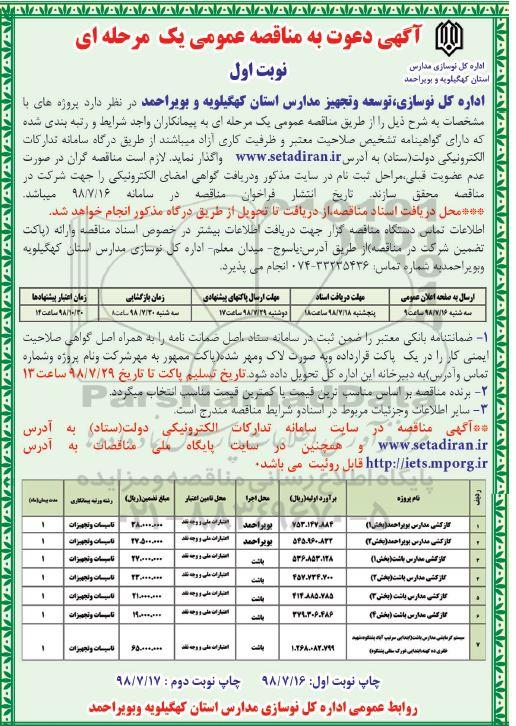 آگهی دعوت به مناقصه عمومی یک مرحله ای
اداره کل نوسازی مدارس
استان کهگیلویه و بویراحمد
نوبت اول
اداره کل نوسازی،توسعه وتجهیز مدارس استان کهگیلویه و بویراحمد در نظر دارد پروژه های با
مشخصات به شرح ذیل را از طریق مناقصه عمومی یک مرحله ای به پیمانکاران واجد شرایط و رتبه بندی شده
که دارای گواهینامه تشخیص صلاحیت معتبر و ظرفیت کاری آزاد میباشند از طریق درگاه سامانه تدارکات
الکترونیکی دولت(ستاد) به آدرس www.setadiran.ir واگذار نماید. لازم است مناقصه گران در صورت
عدم عضویت قبلی،مراحل ثبت نام در سایت مذکور ودریافت گواهی امضای الکترونیکی را جهت شرکت در
مناقصه محقق سازند. تاریخ انتشار فراخوان مناقصه در سامانه ۹۸/۷/۱۶ میباشد.
***محل دریافت اسناد مناقصه،از دریافت تا تحویل از طریق درگاه مذکور انجام خواهد شد.
اطلاعات تماس دستگاه مناقصه گزار جهت دریافت اطلاعات بیشتر در خصوص اسناد مناقصه وارائه (پاکت
تضمین شرکت در مناقصه)از طریق آدرس:یاسوج- میدان معلم- اداره کل نوسازی مدارس استان کهگیلویه
وبویراحمدبه شماره تماس: ۳۳۲۳۵۴۳۶-۰۷۴ انجام می پذیرد.
ارسال به صفحه اعلان عمومی مهلت دریافت اسناد مهلت ارسال پاکتهای پیشنهادی زمان بازگشایی زمان اعتبار پیشنهادها
سه شنبه ۹۸/۷/۱۶ساعت۹ پنجشنبه ۹۸/۷/۱۸ساعت۱۸ دوشنبه ۹۸/۷/۲۹ساعت۱۷ سه شنبه ۹۸/۷/۳۰ ساعت۸ ۹۸/۱۰/۳۰ ساعت۱۴
۱- ضمانتنامه بانکی معتبر را ضمن ثبت در سامانه ستاد،اصل ضمانت نامه را به همراه اصل گواهی صلاحیت
ایمنی کار را در یک پاکت قرارداده وبه صورت لاک ومهر شده(پاکت ممهور به مهرشرکت ونام پروژه وشماره
تماس وآدرس)به دبیرخانه این اداره کل تحویل داده شود.تاریخ تسلیم پاکت تا تاریخ ۹۸/۷/۲۹ ساعت۱۳
۲- برنده مناقصه براساس مناسب ترین قیمت یا کمترین قیمت مناسب انتخاب میگردد.
۳- سایر اطلاعات وجزئیات مربوط در اسنادو شرایط مناقصه مندرج است.
**آگهی مناقصه در سایت سامانه تدارکات الکترونیکی دولت(ستاد) به آدرس
www.setadiran.ir و همچنین در سایت پایگاه ملی مناقصات به آدرس
http://iets.mporg.ir قابل روئیت می باشد.
ردیف نام پروژه برآورد اولیه(ریال) محل اجرا محل تامین اعتبار مبلغ تضمین(ریال) رشته ورتبه پیمانکاری مدت پیمان(ماه)
۱ گازکشی مدارس بویراحمد(بخش۱) ۷۵۳.۱۴۷.۸۸۴ بویراحمد اعتبارات ملی و وجه نقد ۳۸.۰۰۰.۰۰۰ تاسیسات وتجهیزات ۱
۲ گازکشی مدارس بویراحمد(بخش۲) ۵۴۵.۹۶۰.۸۲۲ بویراحمد اعتبارات ملی و وجه نقد ۲۷.۵۰۰.۰۰۰ تاسیسات وتجهیزات ۱
۳ گازکشی مدارس باشت(بخش۱) ۵۳۶.۸۵۳.۱۲۸ باشت اعتبارات ملی و وجه نقد ۲۷.۰۰۰.۰۰۰ تاسیسات وتجهیزات ۱
۴ گازکشی مدارس باشت(بخش۲) ۴۵۷.۷۳۴.۷۰۰ باشت اعتبارات ملی و وجه نقد ۲۳.۰۰۰.۰۰۰ تاسیسات وتجهیزات ۱
۵ گازکشی مدارس باشت (بخش۳) ۴۱۴.۸۸۵.۷۸۵ باشت اعتبارات ملی و وجه نقد ۲۱.۰۰۰.۰۰۰ تاسیسات وتجهیزات ۱
۶ گازکشی مدارس باشت (بخش۴) ۳۷۹.۳۰۶.۴۸۶ باشت اعتبارات ملی و وجه نقد ۱۹.۰۰۰.۰۰۰ تاسیسات وتجهیزات ۱
۷ سیستم گرمایشی مدارس باشت(ابتدایی سرتیپ آباد پشتکوه،شهید
ظفری ده کهنه،ابتدایی شورک سفلی پشتکوه) ۱.۲۶۸.۰۸۲.۷۹۹ باشت اعتبارات ملی و وجه نقد ۶۵.۰۰۰.۰۰۰ تاسیسات وتجهیزات ۱
چاپ نوبت اول: ۹۸/۷/۱۶ چاپ نوبت دوم : ۹۸/۷/۱۷
روابط عمومی اداره کل نوسازی مدارس استان کهگیلویه وبویراحمد